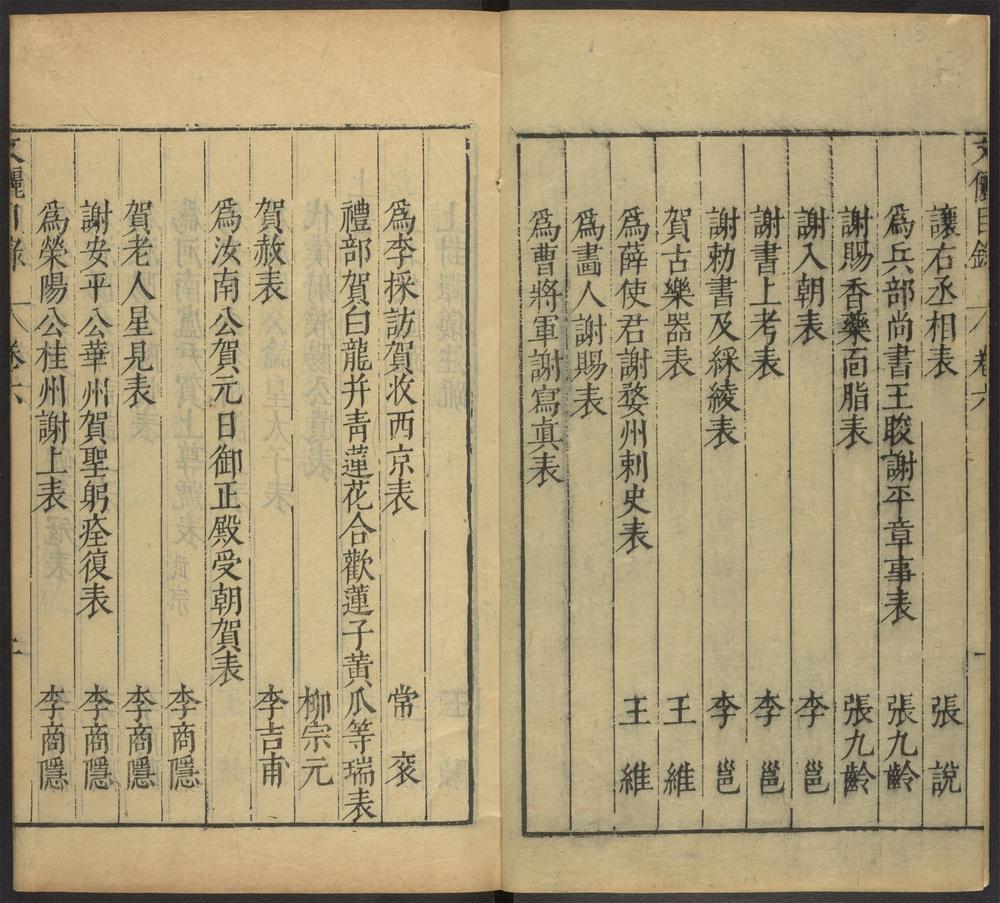 文儷目錄 卷六 一
讓右丞相表 張說
爲兵部尚書王晙謝平章事表 張九齡
謝賜香藥面脂表 張九齡
謝入朝表 李邕
謝書上考表 李邕
謝勅書及綵綾表 李邕
賀古樂器表 王維
爲薛使君謝婺州刺史表 王維
爲畫人謝賜表
爲曹將軍謝寫真表
爲李採訪賀收西京表 常衮
禮部賀白龍并青蓮花合歡蓮子黃瓜等瑞表
柳宗元
賀赦表 李吉甫
爲汝南公賀元日御正殿受朝賀表
李商隱
賀老人星見表 李商隱
謝安平公華州賀聖躬痊復表 李商隱
爲榮陽公桂州謝上表 李商隱
文儷目錄 卷六